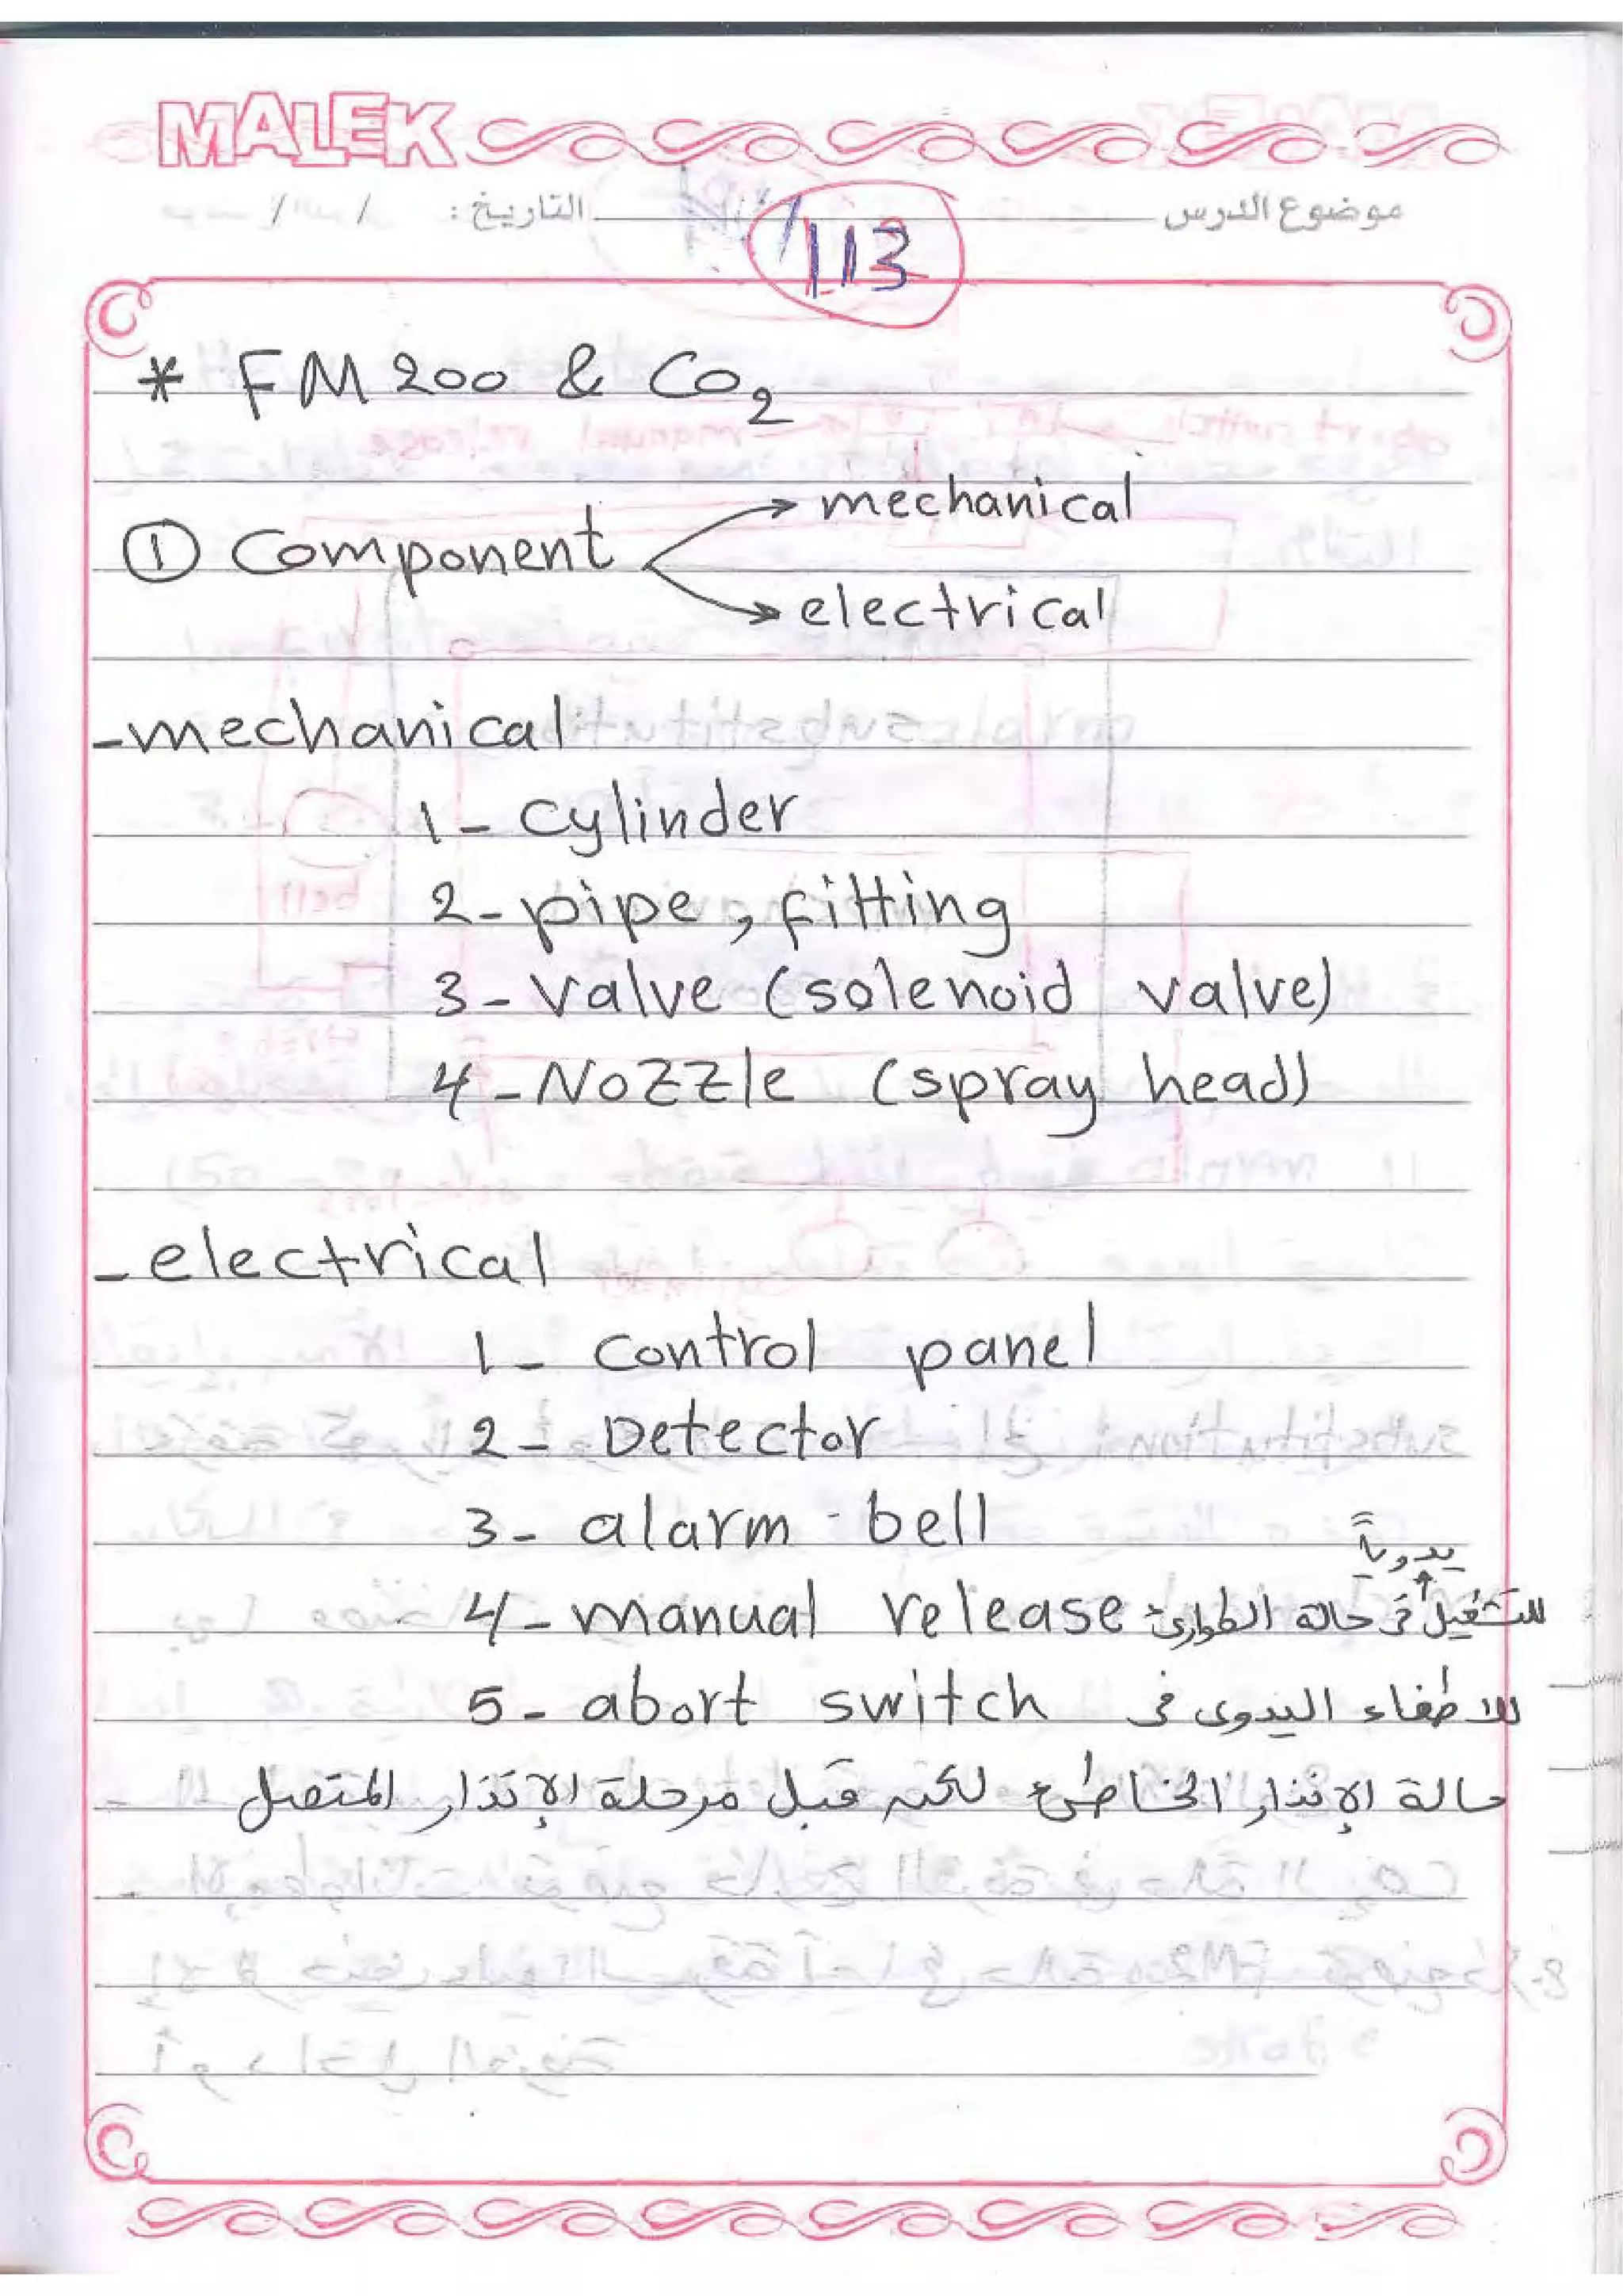 MALEK
موضوع الدرس التاريخ : / /
113
* FM 200 & CO2
① Component
mechanical
electrical
- mechanical
1 - cylinder
2 - pipe , fitting
3 - valve (solenoid valve)
4 - Nozzle (spray head)
- electrical
1 - control panel
2 - Detector
3 - alarm bell
يدوياً
4 - manual release للتشغيل فى حالة الطوارئ
5 - abort switch للاطفاء اليدوى فى
حالة الإنذار الخاطئ لكنه قبل مرحلة الإنذار المتصل